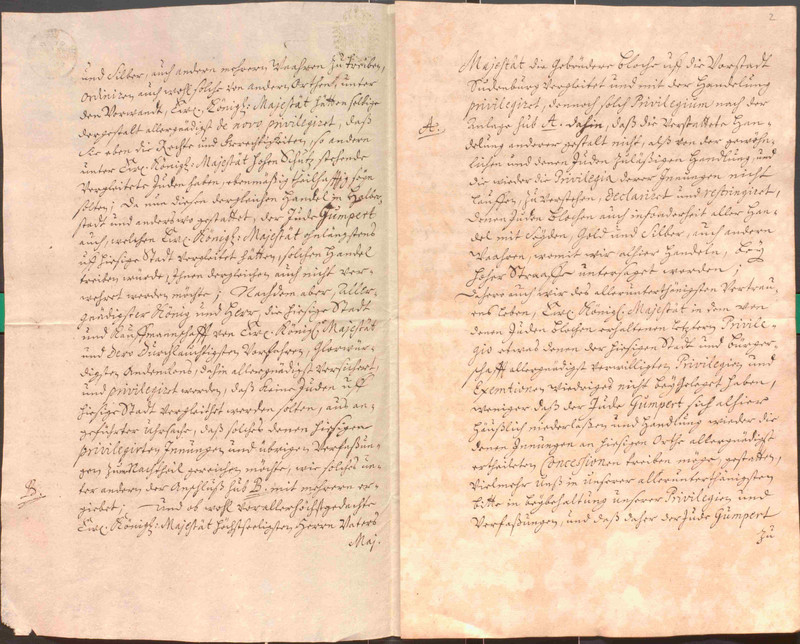 und Silber, auch andern mehrern Waahren zu treiben,
Ordiniren auch wohl solche von andern Orthen, unter
dem Vorwande, Ew. Königl: Majestät hätten selbige
dergestalt allergnädigst de novo privilegiret, daß
sie eben die Rechte und Gerechtigkeiten, so andern
unter Ew. Königl: Majestät hohen Schutz stehende
Vergleitete Juden haben, ebenmäßig theilhafftig seyn
solten; Da nun diesen dergleichen Handel in Halber-
stadt und anderswo gestattet, der Jude Gumpert
auch, welchen Ew. Königl: Majestät ohnlängstens
uff hiesige Stadt vergleitet hätten, solchen Handel
treiben würde, Ihnen dergleichen auch nicht ver-
wehret werden möchte; Nachdem aber, Aller-
gnädigster König und Herr, die hiesige Stadt
und Kauffmannschafft von Ew. Königl: Majestät
und Dero Durchlauchtigsten Vorfahren, Glorwür-
digsten Andenckens, dahin allergnädigst versichert,
und privilegiret worden, daß keine Juden uff
hiesige Stadt vergleithet werden solten, aus an-
geführter Uhrsache, daß solches denen hiesigen
privilegirten Innungen und übrigen Verfaßun-
gen zum Nachtheil gereichen möchte, wie solches un-
ter andern der Anschluß sub B. mit mehrern er-
B.
giebet; Und ob wohl vor allerhöchstgedachte
Ew. Königl: Majestät höchstseeligsten Herrn Vaters
Maj.
2
Majestät die Gebrüdere Bloche uff die Vorstadt
Sudenburg vergleitet und mit der Handelung
privilegiret, dennoch solch Privilegium nach der
A.
Anlage sub A. dahin, daß die verstattete Han-
delung anderer gestalt nicht, alß von der gewöhn-
lichen und denen Juden zuläßigen Handlung, und
die wieder die Privilegia derer Innungen nicht
lauffen, zu verstehen, declariret und restringiret,
denen Juden Blochen auch insonderheit aller Han-
del mit Seyden, Gold und Silber, auch andern
Waahren, womit wir alhier handeln, bey
hoher Straaffe untersaget worden;
Dahero auch wir des allerunterthänigsten Vertrau-
ens leben, Ew. Königl. Majestät in dem von
denen Juden Blochen erhaltenen letztern Privile-
gio etwas denen der hiesigen Stadt und Bürger-
schafft allergnädigst verwilligten Privilegien und
Exemtionen wiedriges nicht beygeleget haben,
weniger daß der Jude Gumpert, sich alhier
häußlich niederlaßen und Handlung wieder die
denen Innungen an hiesigen Orthe allergnädigst
ertheileten Concessionen treiben möge, gestatten,
Vielmehr Unß in unserer allerunterthänigsten
bitte in beybehaltung unserer Privilegien und
Verfaßungen, und daß daher der Jude Gumpert
zu